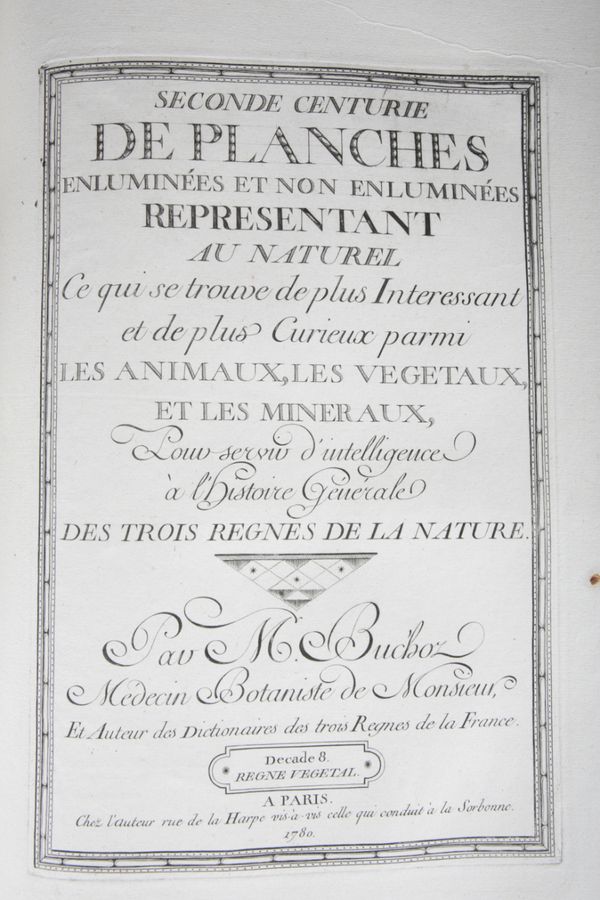 SECONDE CENTURIE
DE PLANCHES
ENLUMINÉES ET NON ENLUMINÉES
REPRESENTANT
AU NATUREL
Ce qui se trouve de plus Interessant
et de plus Curieux parmi
LES ANIMAUX, LES VEGETAUX,
ET LES MINERAUX,
Pour servir d'intelligence
à l'Histoire Générale
DES TROIS REGNES DE LA NATURE.
Par M. Buc'hoz
Médecin Botaniste de Monsieur,
Et Auteur des Dictionaires des trois Regnes de la France.
Decade 8.
REGNE VEGETAL.
A PARIS.
Chez l'Auteur rue de la Harpe vis-à-vis celle qui conduit à la Sorbonne.
1780.